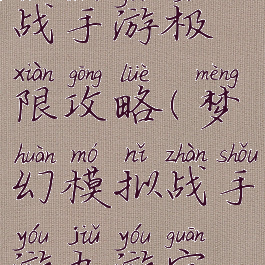 战手游极
xiàn gōng lüè mèng
限攻略(梦
huàn mó nǐ zhàn shǒu
幻模拟战手
yóu jiǔ yóu guān
游九游官